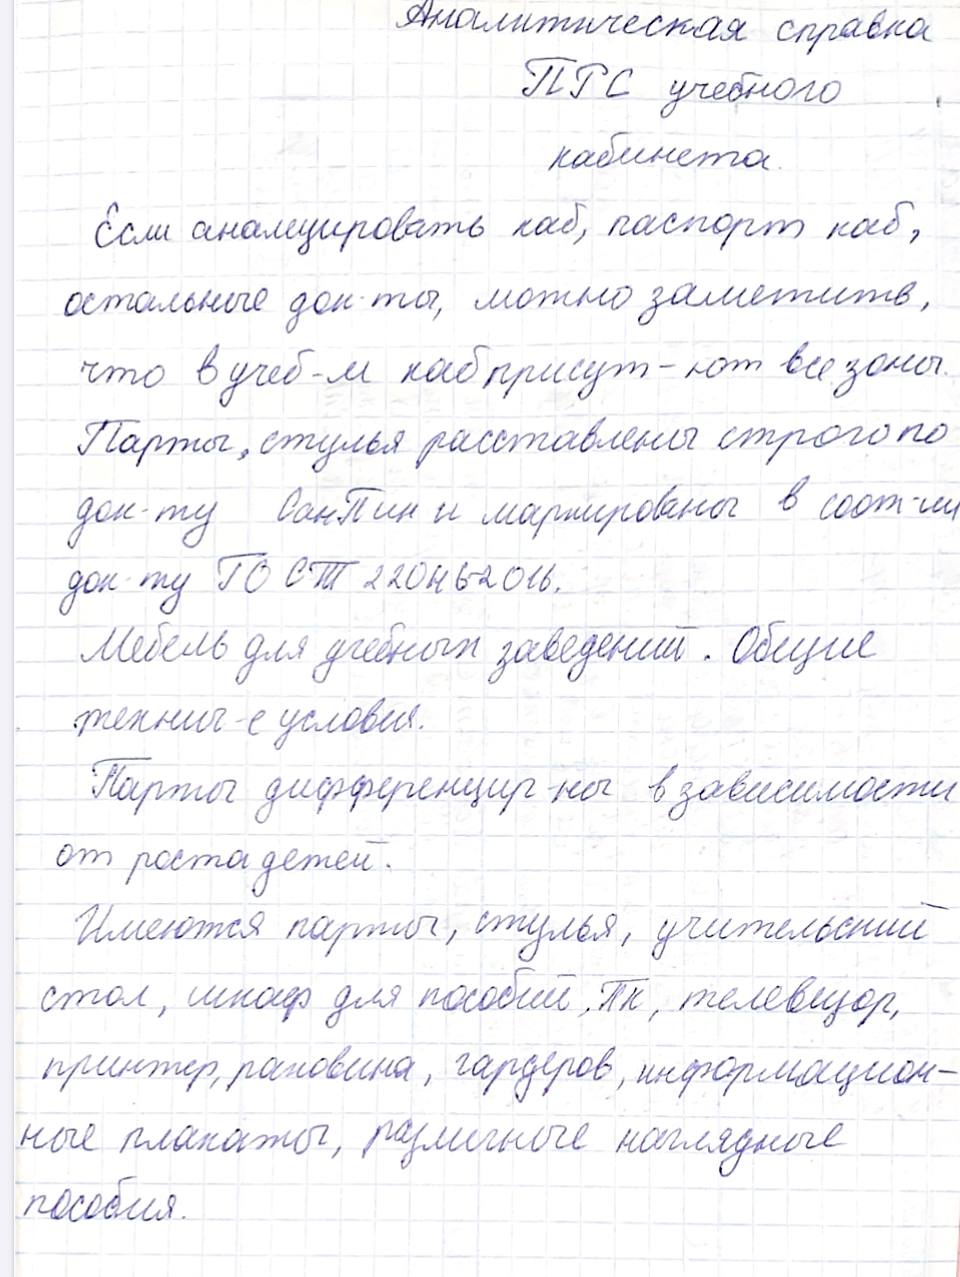 Аналитическая справка
ПРС учебного
кабинета.
Если анализировать каб, паспорт каб,
остальные док-ты, можно заметить,
что в учеб-м каб присут-ют все зоны.
Парты, стулья расставлены строго по
док-ту СанПин и маркированы в соот-ии
док-ту ГОСТ 22046-2016.
Мебель для учебных заведений. Общие
технич-е условия.
Парты дифференцир-ны в зависимости
от роста детей.
Имеются парты, стулья, учительский
стол, шкаф для пособий, ПК, телевизор,
принтер, раковина, гардероб, информацион-
ные плакаты, различные наглядные
пособия.